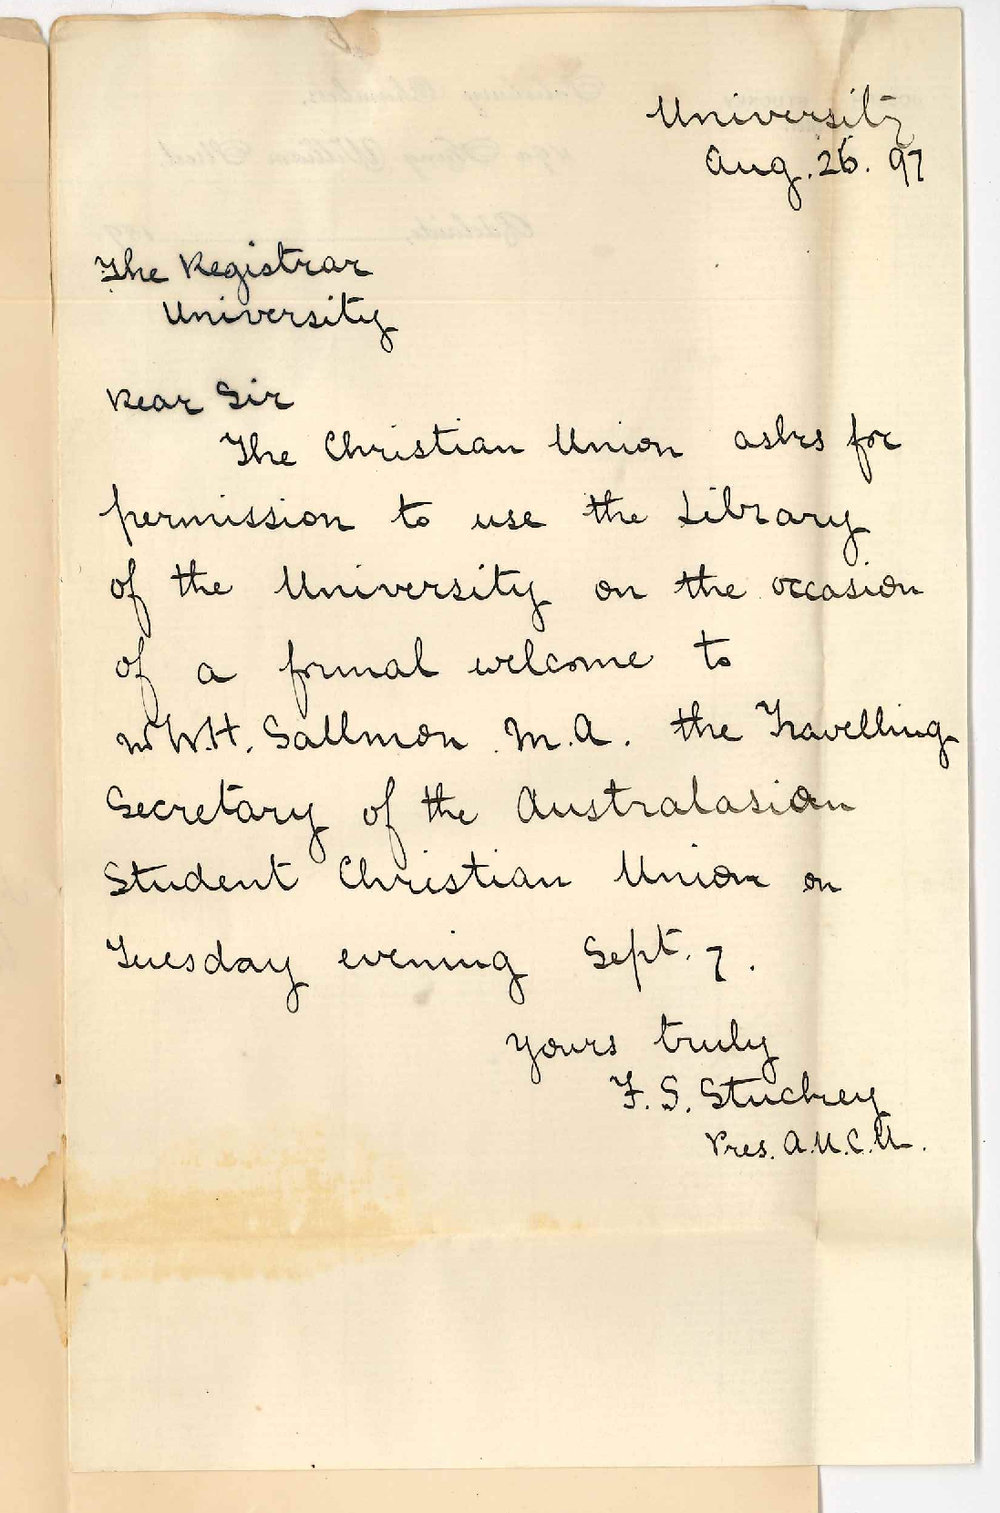 University
Aug. 26. 97
The Registrar
University
Dear Sir
The Christian Union asks for
permission to use the Library
of the University on the occasion
of a formal welcome to
Mr W.H. Sallmon M.A. the Travelling
Secretary of the Australasian
Student Christian Union on
Tuesday evening Sept. 7.
Yours truly
F. S. Stuckey
Pres. A.U.C.U.